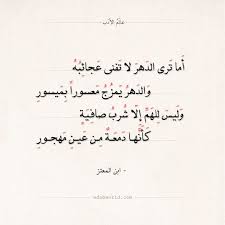 عالم الأدب
أما ترى الدهرَ لا تفنى عجائبهُ
والدهرُ يمزُجُ معسوراً بميسورِ
وليس للهمِّ إلا شربُ صافيةٍ
كأنّها دمعةٌ من عينِ مهجورِ
- ابن المعتز -
adabworld.com